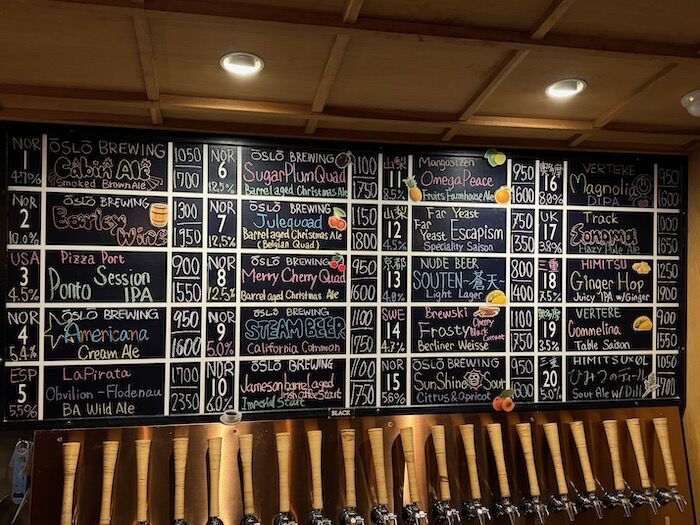 NOR 1 4.7%
ŌSLŌ BREWING
Cabin Ale
Smoked Brown Ale
1050
1700
NOR 2
ŌSLŌ BREWING
Barley Wine
1300
1950
USA 3 4.5%
Pizza Port
Ponto Session
IPA
900
1500
NOR 4 5.4%
ŌSLŌ BREWING
Americana
Cream Ale
1000
1600
ESP 5 5.5%
LaPirata
Obvilion-Flodenau
BA Wild Ale
1700
2350
NOR 6
ŌSLŌ BREWING
SugarPlumQuad
Barrel aged Christmas Ale
1100
1750
NOR 7 12.5%
ŌSLŌ BREWING
Julequad
Barrel aged Christmas Ale
(Belgian Quad)
1150
1800
NOR 8 12.5%
ŌSLŌ BREWING
Merry Cherry Quad
Barrel aged Christmas Ale
950
NOR 9 5.0%
ŌSLŌ BREWING
STEAM BEER
California Common
1000
NOR 10
ŌSLŌ BREWING
Jameson barrel aged
Irish Coffee Stout
Imperial Stout
1100
1750
山梨 11 8%
Mangosteen
OmegaPeace
Fruits Farmhouse Ale
900
1500
山梨 12 4.5%
Far Yeast
Far Yeast Escapism
Speciality Saison
700
1350
京都 13 4.8%
NUDE BEER
SOUTEN-蒼天
Light Lager
800
SWE 14
Brewski
Frosty
Black Currant
Berliner Weisse
NOR 15 5.6%
ŌSLŌ BREWING
SunShine Sour
Citrus & Apricot
16 8%
VERTERE
Magnolia
DIPA
950
1600
UK 17 3.8%
Track
Sonoma
Hazy Pale Ale
950
1600
三重 18 7.5%
HIMITSU
Ginger Hop
Juicy IPA w/Ginger
900
19 3.5%
VERTERE
Commelina
Table Saison
20
HIMITSU
ひみつのビール
Sour Ale w/ Dill
1050
1700
BLACK